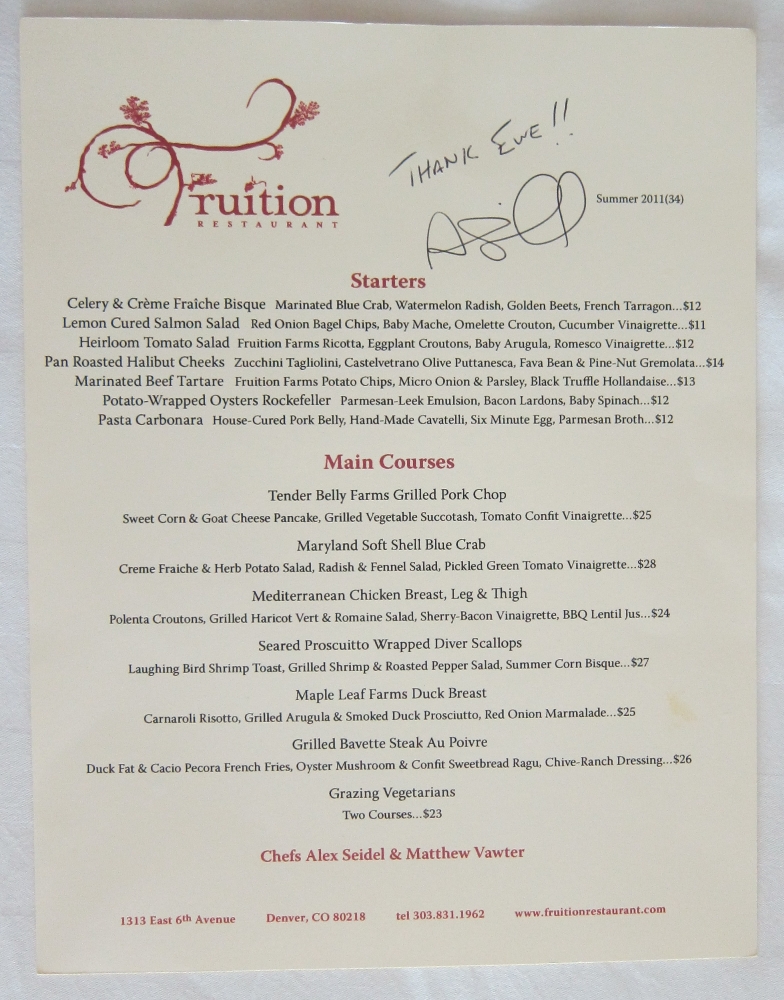 Fruition
RESTAURANT
THANK EWE!!
Summer 2011(34)
Starters
Celery & Crème Fraîche Bisque Marinated Blue Crab, Watermelon Radish, Golden Beets, French Tarragon...$12
Lemon Cured Salmon Salad Red Onion Bagel Chips, Baby Mache, Omelette Crouton, Cucumber Vinaigrette...$11
Heirloom Tomato Salad Fruition Farms Ricotta, Eggplant Croutons, Baby Arugula, Romesco Vinaigrette...$12
Pan Roasted Halibut Cheeks Zucchini Tagliolini, Castelvetrano Olive Puttanesca, Fava Bean & Pine-Nut Gremolata...$14
Marinated Beef Tartare Fruition Farms Potato Chips, Micro Onion & Parsley, Black Truffle Hollandaise...$13
Potato-Wrapped Oysters Rockefeller Parmesan-Leek Emulsion, Bacon Lardons, Baby Spinach...$12
Pasta Carbonara House-Cured Pork Belly, Hand-Made Cavatelli, Six Minute Egg, Parmesan Broth...$12
Main Courses
Tender Belly Farms Grilled Pork Chop
Sweet Corn & Goat Cheese Pancake, Grilled Vegetable Succotash, Tomato Confit Vinaigrette...$25
Maryland Soft Shell Blue Crab
Creme Fraiche & Herb Potato Salad, Radish & Fennel Salad, Pickled Green Tomato Vinaigrette...$28
Mediterranean Chicken Breast, Leg & Thigh
Polenta Croutons, Grilled Haricot Vert & Romaine Salad, Sherry-Bacon Vinaigrette, BBQ Lentil Jus...$24
Seared Proscuitto Wrapped Diver Scallops
Laughing Bird Shrimp Toast, Grilled Shrimp & Roasted Pepper Salad, Summer Corn Bisque...$27
Maple Leaf Farms Duck Breast
Carnaroli Risotto, Grilled Arugula & Smoked Duck Prosciutto, Red Onion Marmalade...$25
Grilled Bavette Steak Au Poivre
Duck Fat & Cacio Pecora French Fries, Oyster Mushroom & Confit Sweetbread Ragu, Chive-Ranch Dressing...$26
Grazing Vegetarians
Two Courses...$23
Chefs Alex Seidel & Matthew Vawter
1313 East 6th Avenue Denver, CO 80218 tel 303.831.1962 www.fruitionrestaurant.com